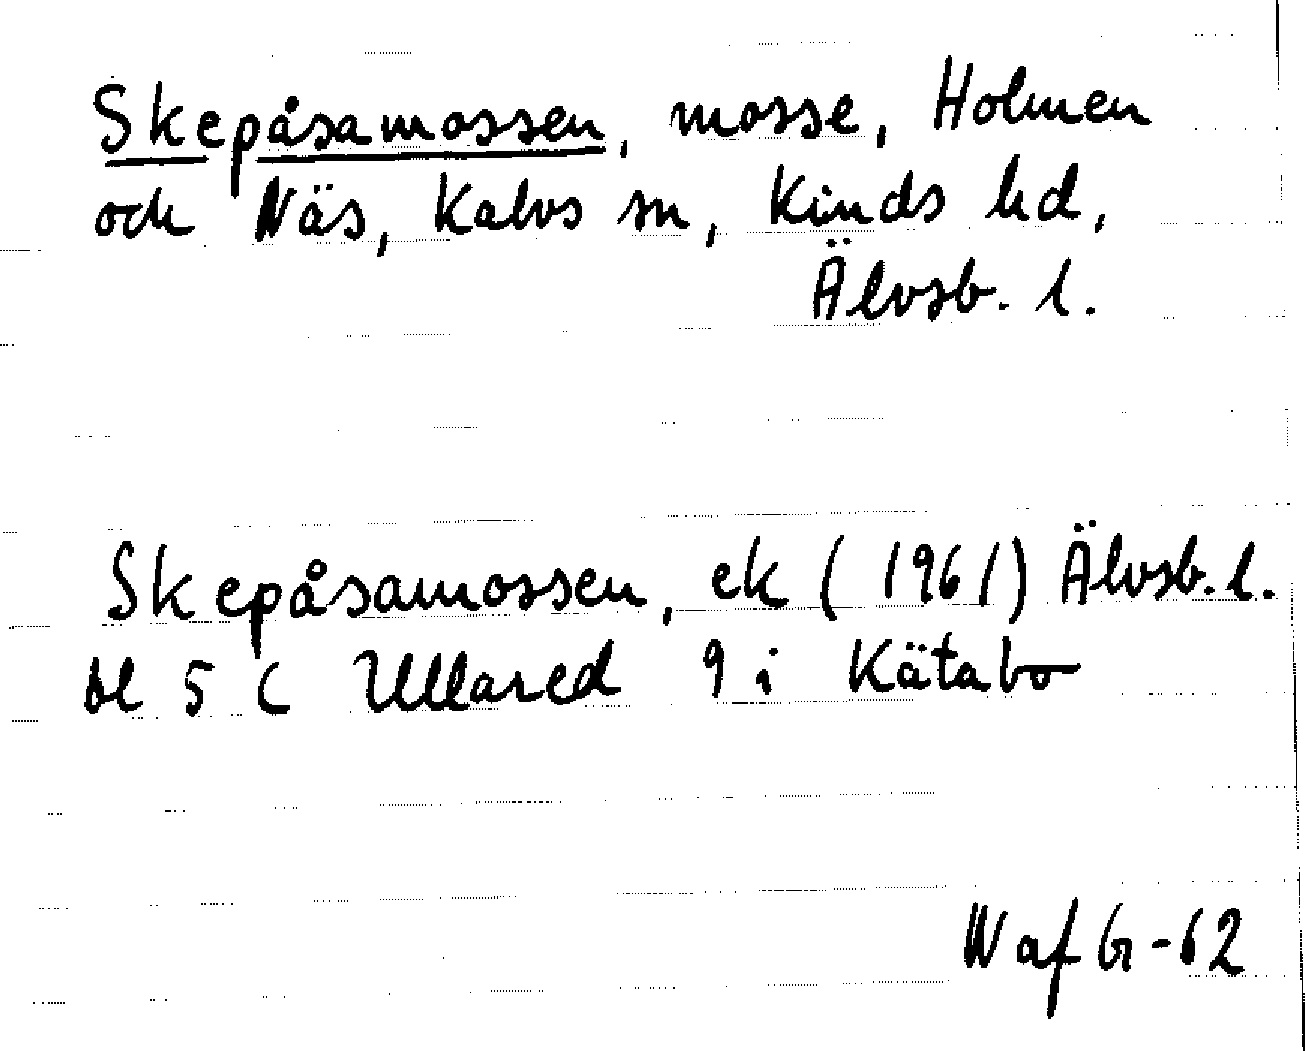 Skepåsamossen, mosse, Holmen
och Näs, Kalvs sn, Kinds hd,
Älvsb. l.
Skepåsamossen, ek (1961) Älvsb. l.
bl 5 C Ullared 9 i Kätabo
W af G-62